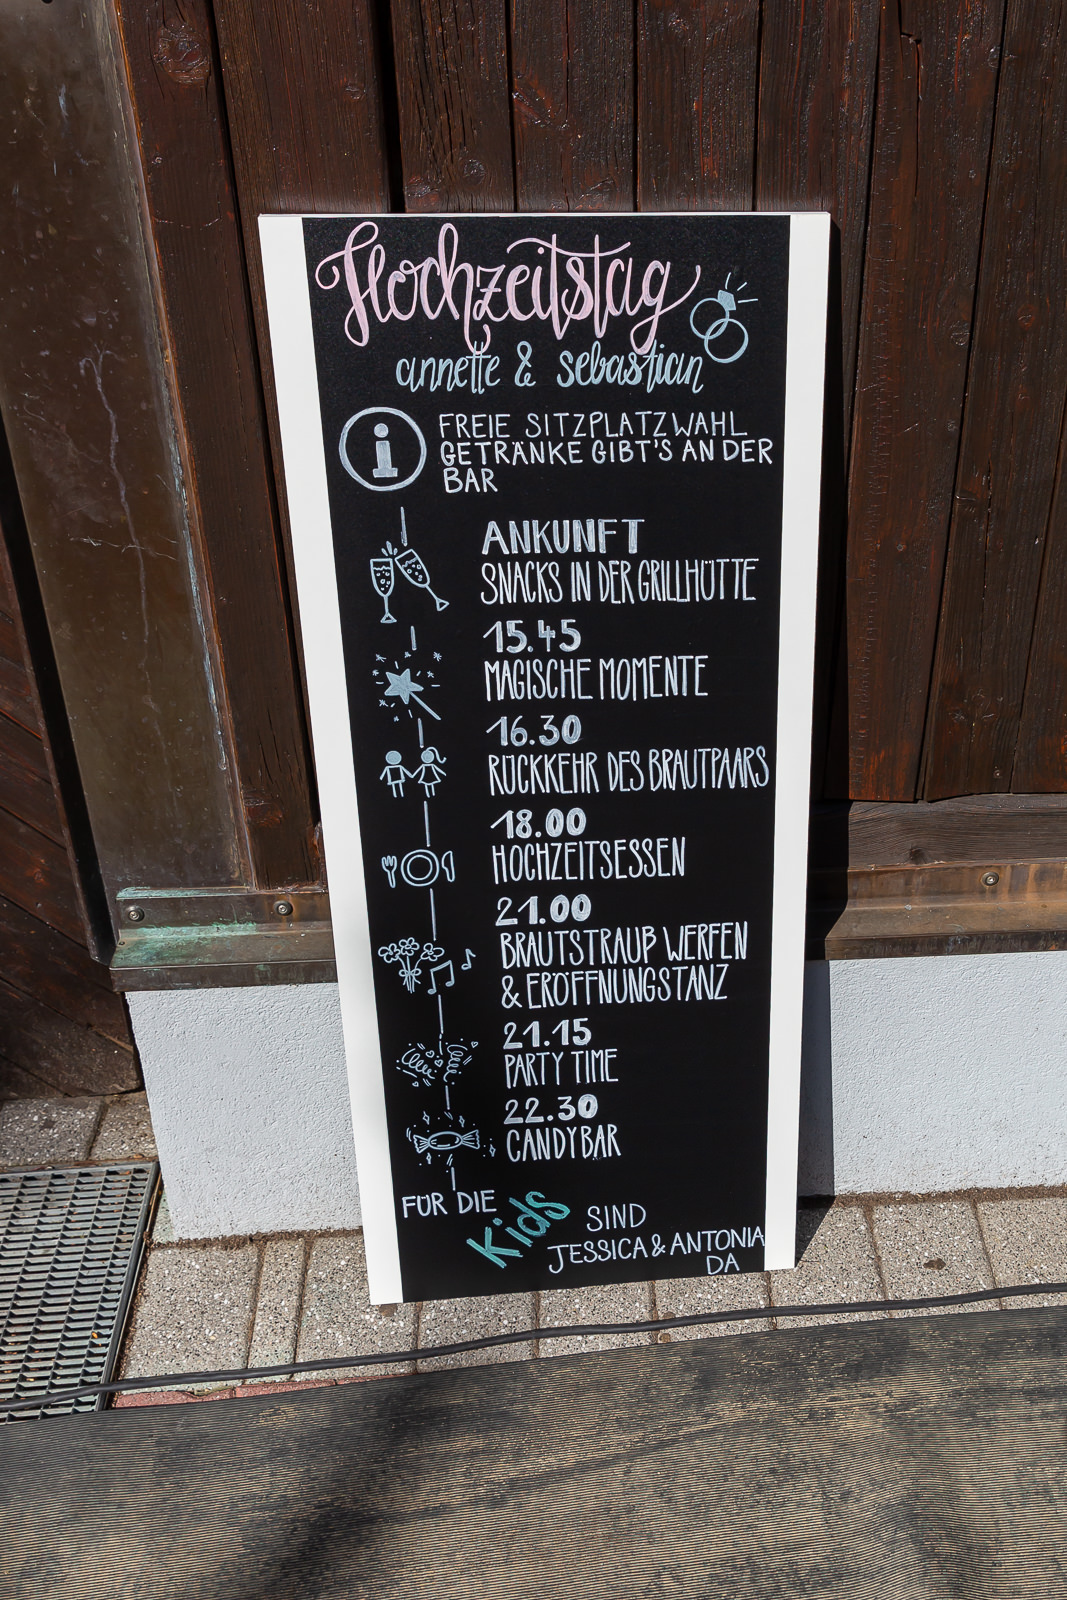 Hochzeitstag
annette & sebastian
i
FREIE SITZPLATZWAHL
GETRÄNKE GIBT'S AN DER
BAR
ANKUNFT
SNACKS IN DER GRILLHÜTTE
15.45
MAGISCHE MOMENTE
16.30
RÜCKKEHR DES BRAUTPAARS
18.00
HOCHZEITSESSEN
21.00
BRAUTSTRAUß WERFEN
& ERÖFFNUNGSTANZ
21.15
PARTY TIME
22.30
CANDYBAR
FÜR DIE
Kids
SIND
JESSICA & ANTONIA
DA